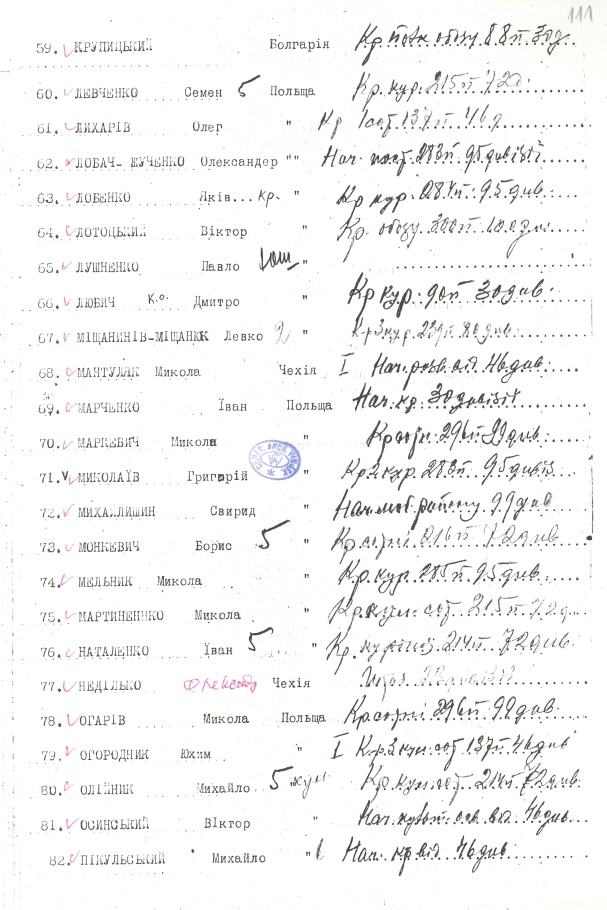 111
59. КРУПИЦЬКИЙ Болгарія Кр. обозу 88п 30д.
60. ЛЕВЧЕНКО Семен 5 Польща Кр. кур. 215п 72д.
61. ЛИХАРІВ Олег " Кр 1 сот 137п 46д
62. ЛОБАЧ- ЖУЧЕНКО Олександер "" Нач. 283п 95 дивізії
63. ЛОБЕНКО Яків... кр. " Кр кур. 284п. 95 див.
64. ЛОТОЦЬКИЙ Віктор " Кр. обозу 300п 100 див.
65. ЛУШНЕНКО Павло "
66. ЛЮБИЧ К.о. Дмитро " Кр кур. 90п 30 див.
67. МІЩАНИНІВ-МІЩАНЮК Левко " Кр 3 кур. 239п 80 див.
68. МАНТУЛЯК Микола Чехія I Нач. розв. від. 46 див.
69. МАРЧЕНКО Їван Польща Нач. кр. 30 дивізії
70. МАРКЕВИЧ Микола " Кр сотні 296п 99 див.
71. МИКОЛАЇВ Григорій " Кр 2 кур. 283п. 95 дивіз
72. МИХАЙЛИШИН Свирид " Нач. моб району 99 див
73. МОНКЕВИЧ Борис 5 " Кр. сотні 216п 72 див
74. МЕЛЬНИК Микола " Кр. кур. 285п 95 див.
75. МАРТИНЕННКО Микола " Кр. кул. сот. 215п. 72 д.
76. НАТАЛЕНКО Їван 5 " Кр. куреня 214п. 72 див.
77. НЕДІЛЬКО Чехія
78. ОГАРІВ Микола Польща Кр. сотні 296п 99 див.
79. ОГОРОДНИК Юхим " I Кр. 3 кул. сот 137п 46 див
80. ОЛІЙНИК Михайло 5 " кул Кр. кул. сот. 214п 72 див
81. ОСИНСЬКИЙ ВІктор " Нач. культ. осв. від. 46 див
82. ПІКУЛЬСЬКИЙ Михайло " Нач. кр від 46 див.